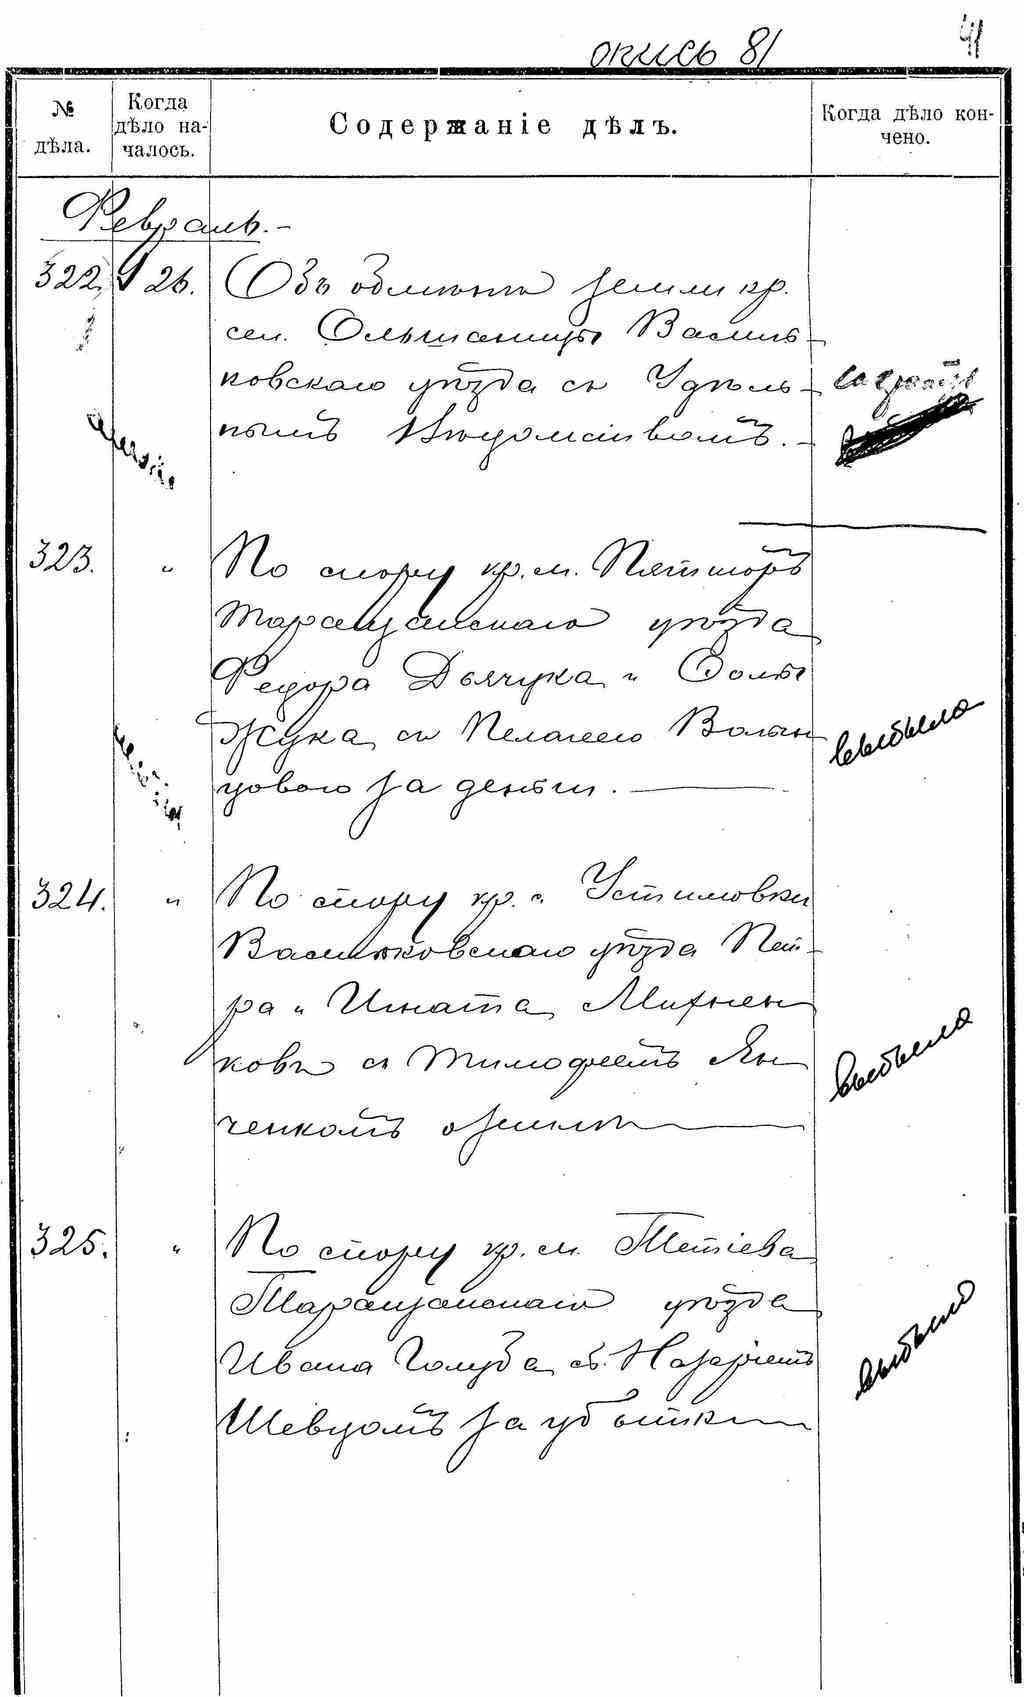 опись 81
41
№ дѣла.
Когда дѣло на-
чалось.
Содержаніе дѣлъ.
Когда дѣло кон-
чено.
Февраль.-
322. 26. Объ обмѣнѣ земли кр.
сел. Ольшаницы Василь-
ковскаго уѣзда съ Удѣль-
нымъ Вѣдомствомъ.-
323. " По спору кр. м. Пятигоръ
Таращанскаго уѣзда
Федора Дьячука и
Жука съ Пелагеею
за деньги.
выбыло
324. " По спору кр. с. Устимовки
Васильковскаго уѣзда Пет-
ра и Игната Михнен-
ковъ съ Тимофеемъ Ян-
ченкомъ о землѣ
выбыло
325. " По спору кр. м. Тетіева
Таращанскаго уѣзда
Ивана Голуба съ Назаріемъ
Шевцомъ за убытки
выбыло